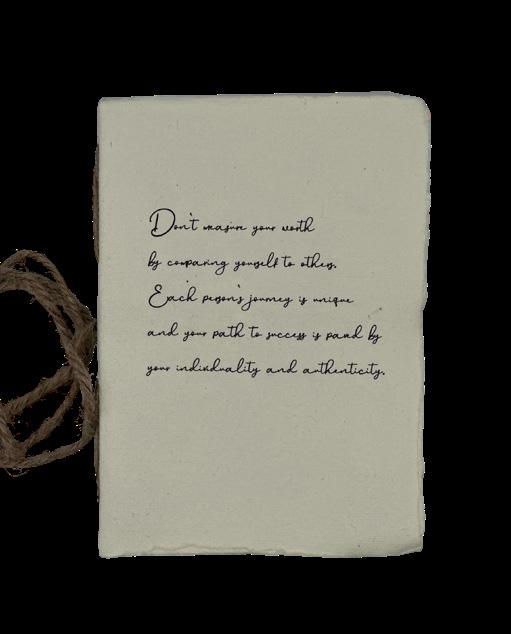 Don't measure your worth
by comparing yourself to others.
Each person's journey is unique
and your path to success is paved by
your individuality and authenticity.